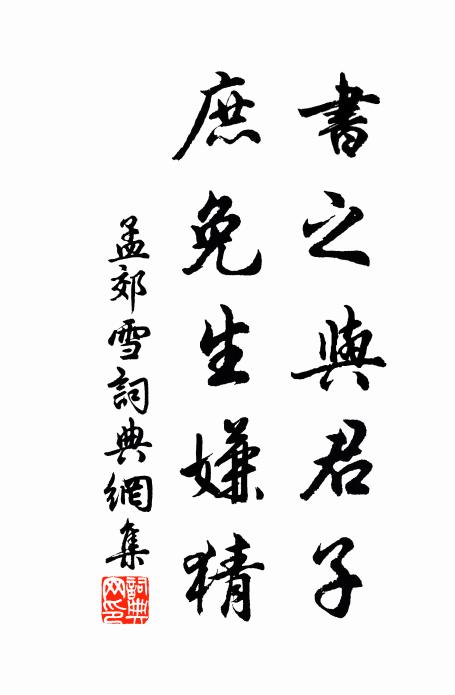 書之與君子
庶免生嫌猜
孟郊雪詞典網集
詞典網印